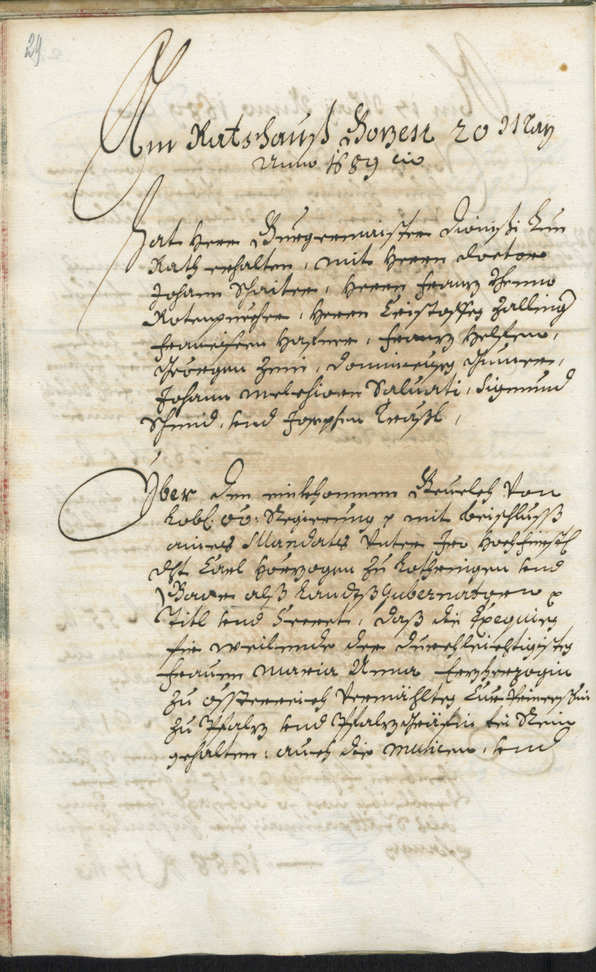 29
Am Ratshauß Bozen 20 May
Anno 1689 etc
Hat Herr Burgermaister Dionisi Ein
Rath erhalten, mit Herrn Doctor
Johann Herrn Franz
Herrn Cristoffen
Franciscen Hafner, Franz
Georgen Dominicus
Johann Melchiorn Saluati, Sigmund
Schmid, und Josephen
Über den einkhomnen Bevelch von
Lobl: oö: Regierung mit beischluss
aines Mandats unter Iro Hochfürstl
dht Carl Herzogen zu Lothringen und
Baar alß Landtß Gubernatorn
Titl und Secret, daß die Exequien
für weilendt der durchleichtigisten
Frauen Maria Anna Erzherzogin
zu Össterreich vermählten Curfürstin
zu Pfalz und Pfalzgräfin bei Rein
gehalten, auch die Musicen, und